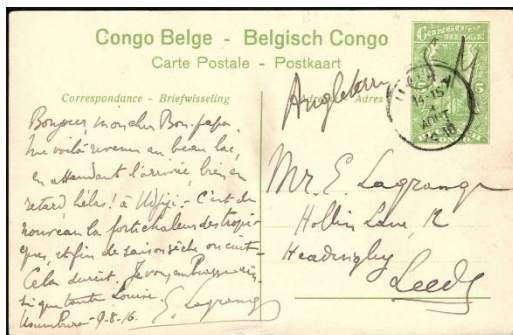 Congo Belge - Belgisch Congo
Carte Postale - Postkaart
Correspondance - Briefwisseling
Adres
CONGO
BELGE
5
Angleterre
AOUT
Bonjour, mon cher Bon-papa.
me voilà revenu au beau lac,
en attendant l'arrivée, bien en
retard, hélas! à Udjiji. - C'est de
nouveau la forte chaleur des tropi-
ques, et fin de saison sèche on cuit -
Cela durcit. Je vous embrasse ain-
si que tante Louise
E. Lagrange
9-8-16.
Mr. E. Lagrange
Hollin Lane, 12
Headingley
Leeds